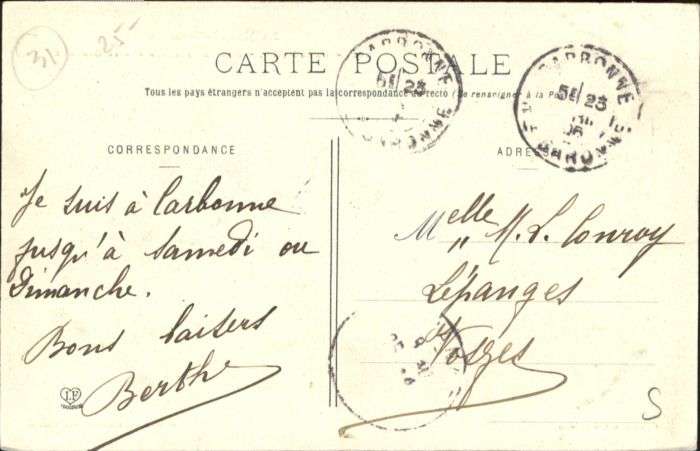 31
25-
CARTE POSTALE
Tous les pays étrangers n'acceptent pas la correspondance au recto (Se renseigner à la Poste)
CARBONNE
CARBONNE
GARONNE
CORRESPONDANCE
ADRESSE
Je suis à Carbonne
jusqu'à Samedi ou
Dimanche.
Bons baisers
Berthe
Melle M. L. Conroy
Lépanges
Vosges
J.F
S